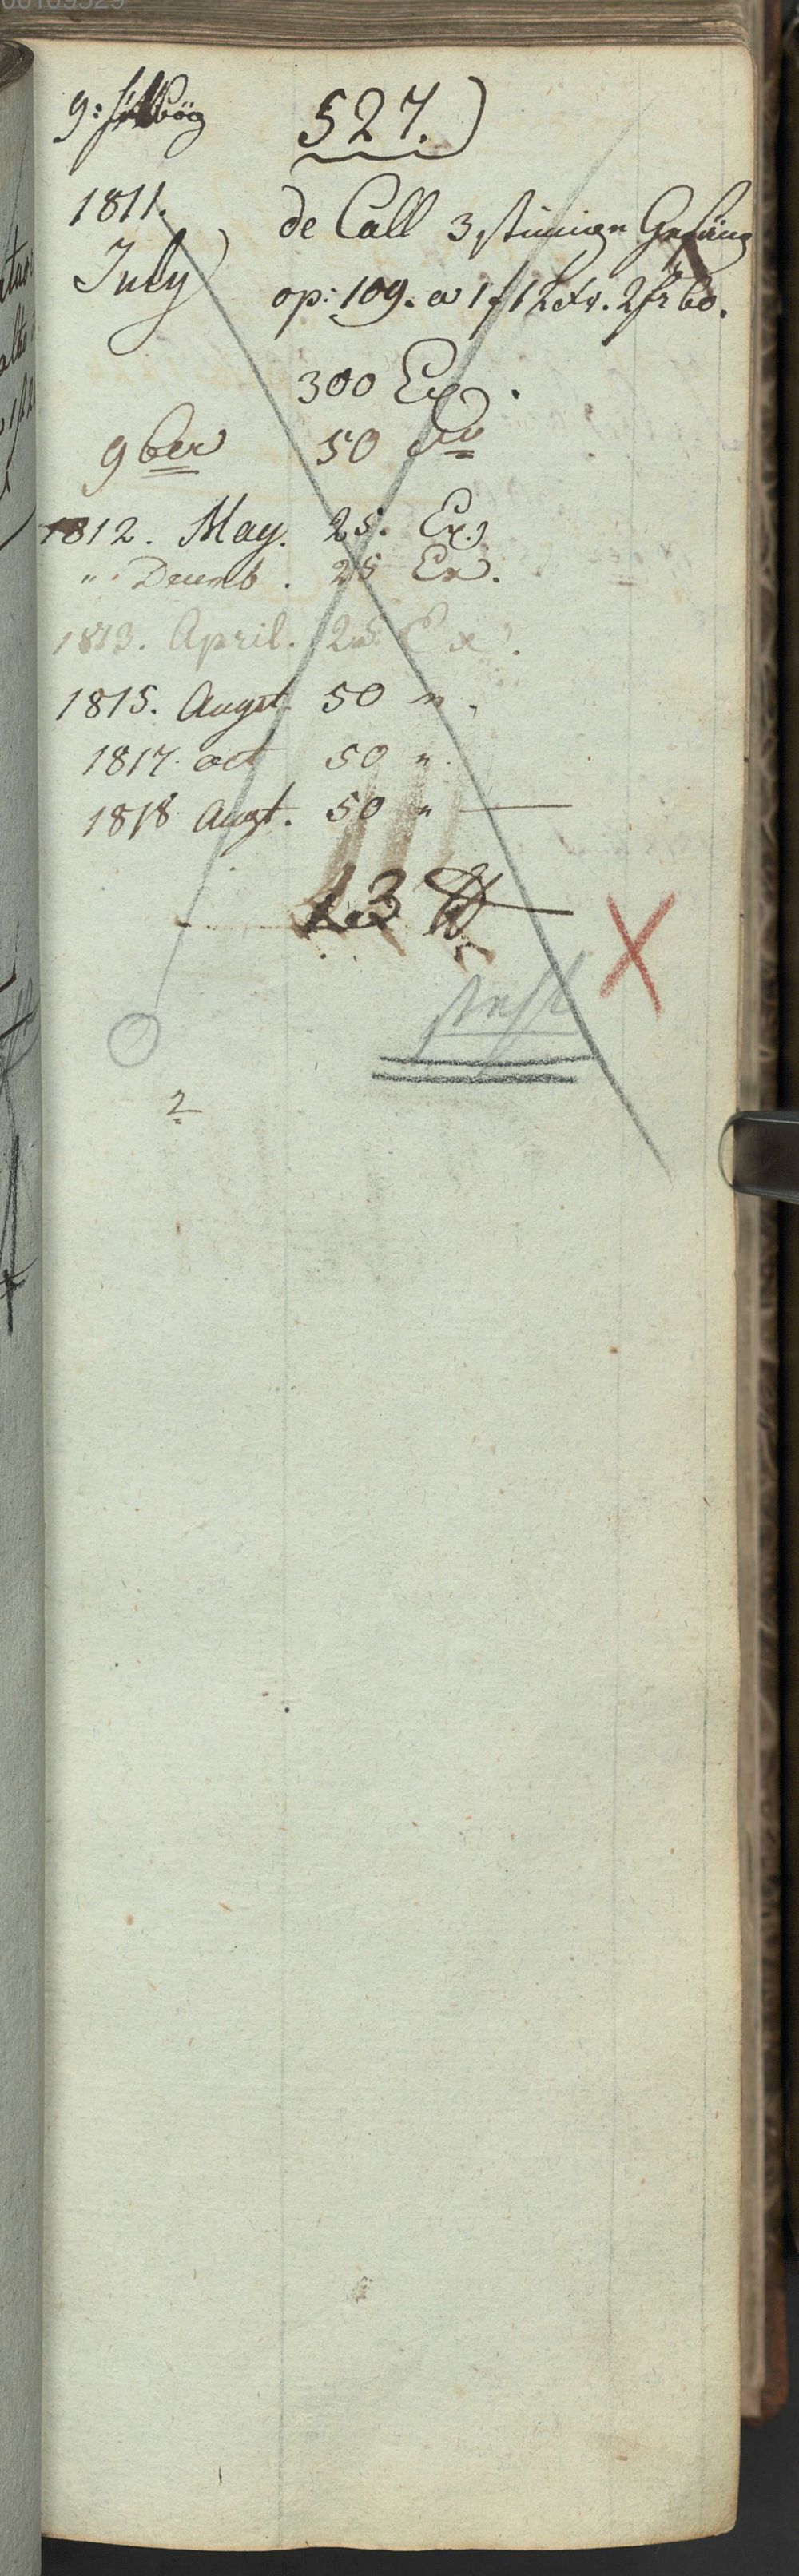 527.)
1811. de Call 3 stimige Gesäng
July op: 109. a 1 f 12 xr. 2 fr 60.
300 Ex.
9ber 50
1812. May. 25. Ex.
" Decemb. 25 Ex.
1813. April. 25 Ex.
1815. Augst 50 "
1817. oct 50 "
1818 Augt. 50 "
13
2